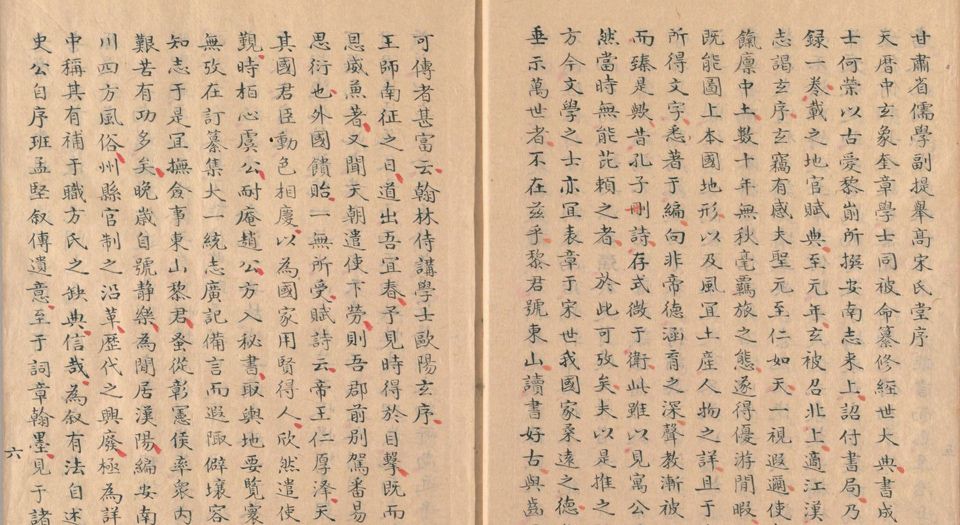 甘肅省儒學副提舉高宋氏堂序
天曆中玄象奎章學士同被命纂修經世大典書成
士何榮以古愛黎崱所撰安南志来上詔付書局乃
録一巻載之地官賦典至元年玄被召北上適江漢
志謁玄序玄竊有感夫聖元至仁如天一視遐邇使
餼廪中土數十年無秋毫羈旅之態遂得優游閒暇
既能圖上本國地形以及風冝土産人拘之詳且于
所得文字悉著于編向非帝德涵育之深聲教漸被
而臻是歟昔孔子刪詩存式微于衛此雖以見寓公
然當時無能茈頼之者於此可攷矣夫以是推之
方今文學之士亦冝表章于宋世我國家柔遠之德
垂示萬世者不在茲乎黎君號東山讀書好古與齒
可傳者甚富云翰林侍講學士歐陽玄序
王師南征之日道出吾冝春予見時得於目擊既而
恩威魚著又聞天朝遣使下勞則吾郡前別駕番易
思衍也外國饋貽一無所受賦詩云帝王仁厚澤天
其國君臣動色相慶以為國家用賢得人欣然遣使
覲時栢心虞公耐庵趙公方入秘書取輿地要覽褱
無攷在訂纂集大一統志廣記備言而遐陬僻壤容
知志于是冝撫僉事東山黎君蚤從彰憲侯率衆内
艱苦有功多矣晚歳自號静樂為閒居漢陽編安南
川四方風俗州縣官制之沿革歷代之興廢極為詳
中稱其有補于職方氏之缺典信哉為叙有法自述
史公自序班孟堅叙傳遺意至于詞章翰墨見于諸
六